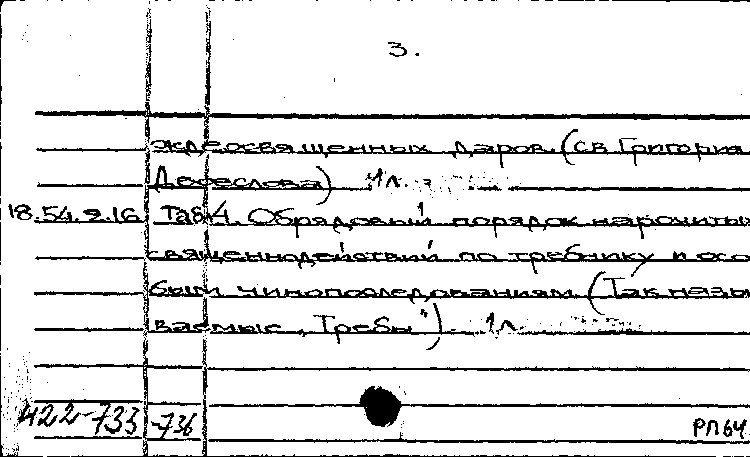 3.
ждеосвященных Даров. (св Григория
Двоеслова) 1л.
18.54.9.16 Таб 4. Обрядовый порядок нарочитых
священнодействий по требнику и осо
бым чинопоследованиям (Так назы
ваемые „Требы") 1л.
422-733 -736
РП64